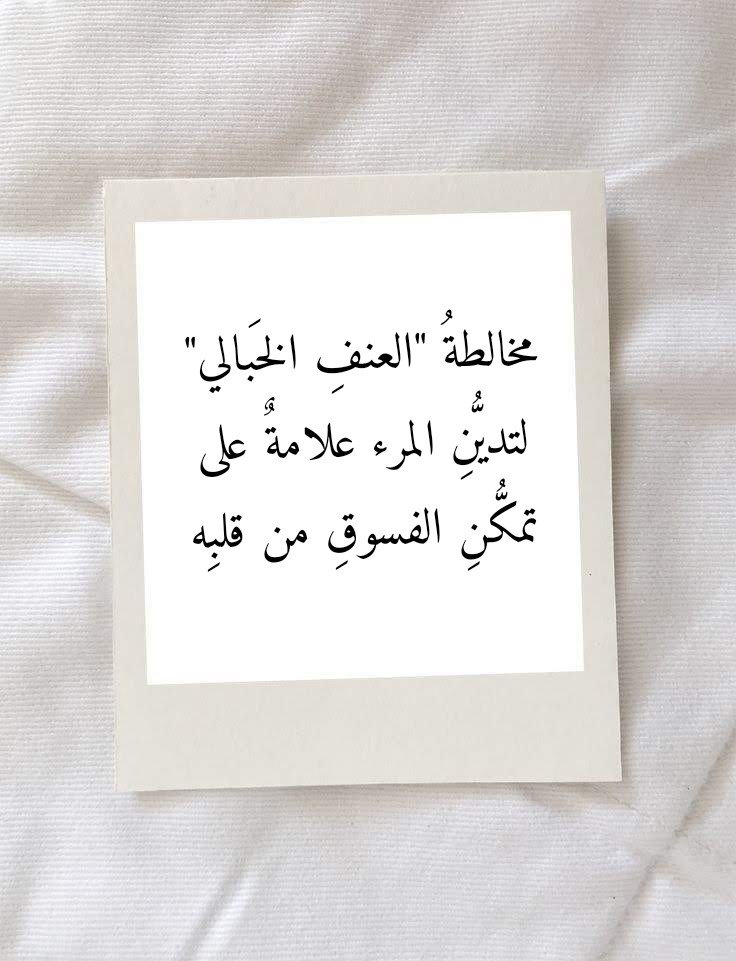 مخالطةُ "العنفِ الخَبالي"
لتديُّنِ المرء علامةٌ على
تمكُّنِ الفسوقِ من قلبِه